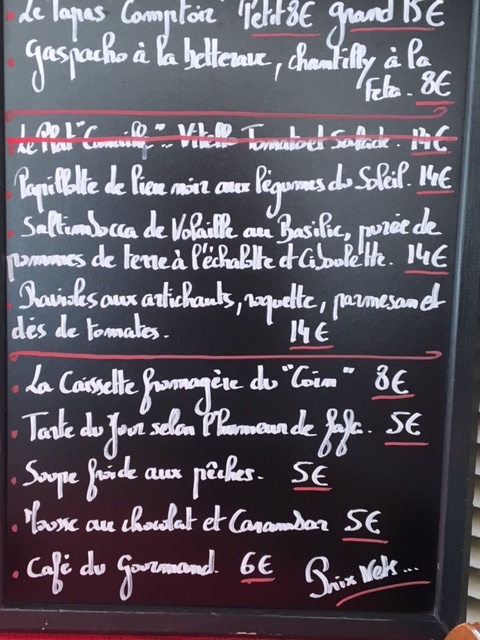 Le Tapas Comptoir Petit 8€ grand 15€
Gaspacho à la betterave, chantilly à la
Feta. 8€
Le Plat "Camille": Vitello Tomato et Salade. 14€
Papillotte de lieu noir aux légumes du Soleil. 14€
Saltimbocca de Volaille au Basilic, purée de
pommes de terre à l'échalotte et Ciboulette. 14€
Ravioles aux artichauts, roquette, parmesan et
dés de tomates. 14€
La Caissette fromagère du "Coin" 8€
Tarte du Jour selon l'humeur de fafa. 5€
Soupe froide aux pêches. 5€
Mousse au chocolat et Carambar 5€
Café du Gourmand. 6€ Prix Nets...